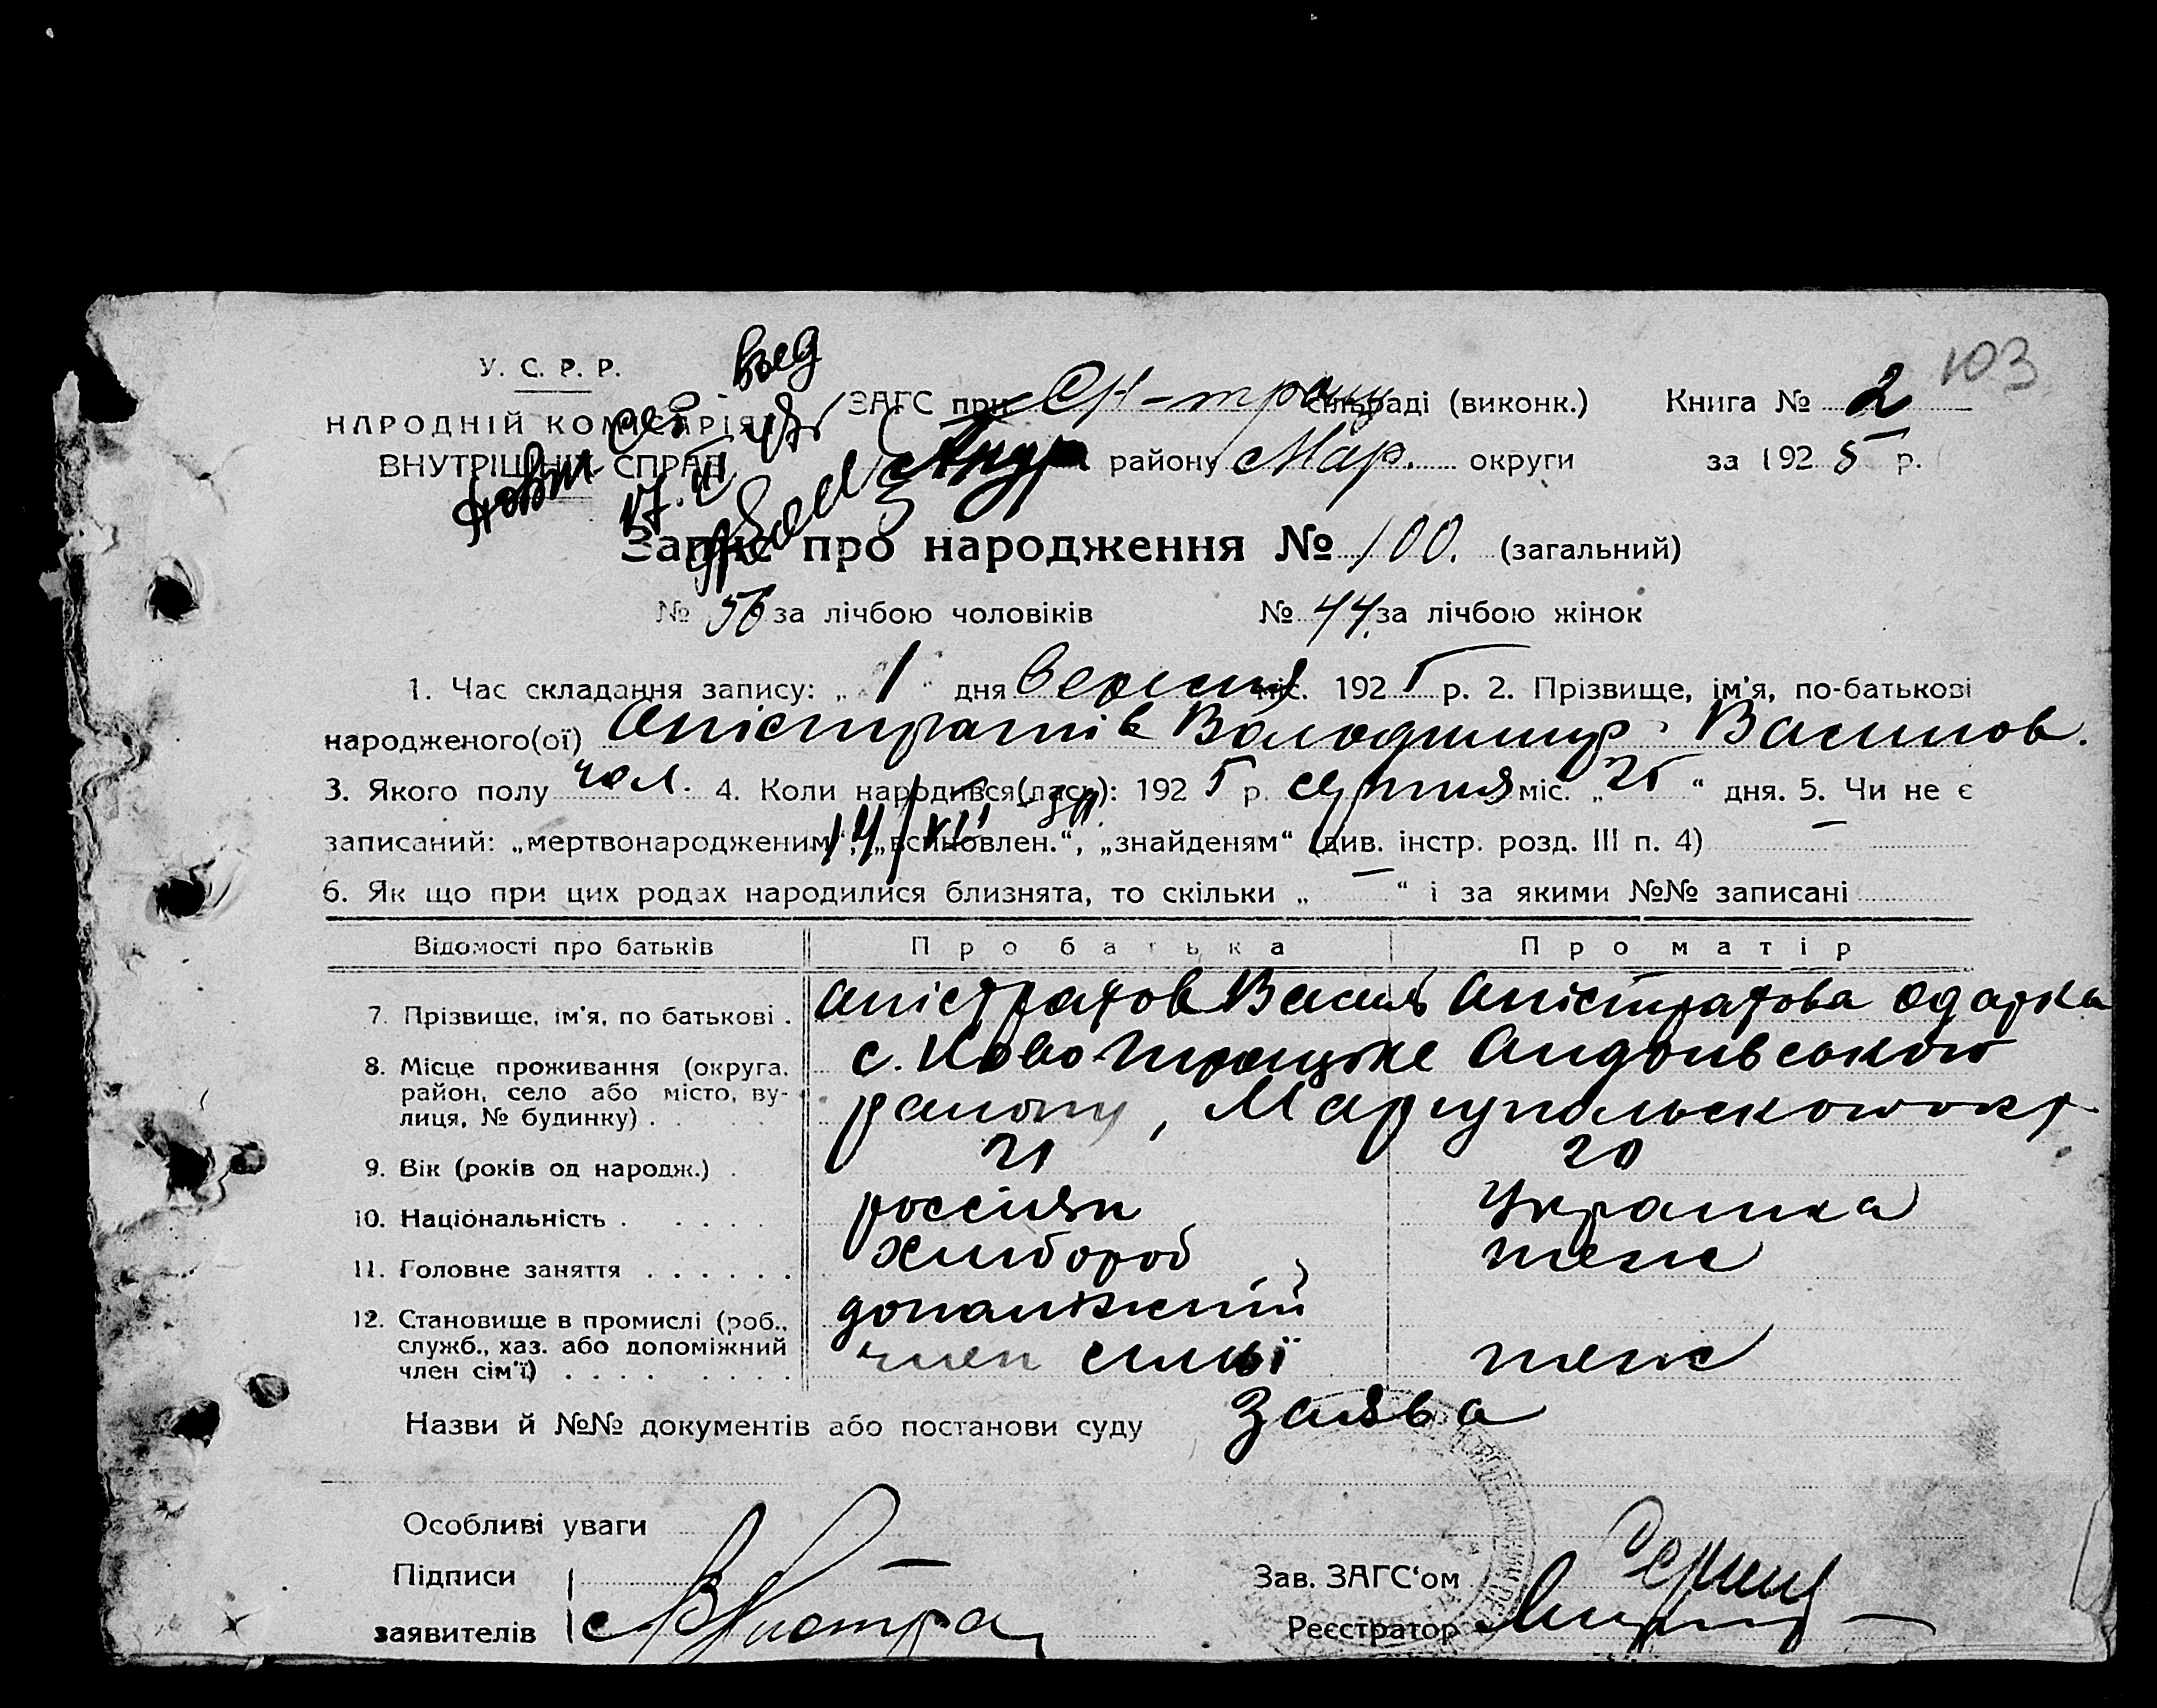 103
У. С. Р. Р.
НАРОДНІЙ КОМІСАРІЯТ
ВНУТРІШНІХ СПРАВ
ЗАГС при сільраді (виконк.)
Книга № 2
району Мар. округи
за 1925 р.
17.III
Запис про народження № 100. (загальний)
№ 56 за лічбою чоловіків № 44. за лічбою жінок
1. Час складання запису: „ 1 “ дня вересня міс. 1925 р. 2. Прізвище, ім'я, по-батькові
народженого(ої) Апістратів Володимир Васильов.
3. Якого полу чол. 4. Коли народився(лась): 1925 р. серпня міс. „ 25 “ дня. 5. Чи не є
записаний: „мертвонародженим“, „всиновлен.“, „знайденям“ (див. інстр. розд. III п. 4) —
6. Як що при цих родах народилися близнята, то скільки „ — “ і за якими №№ записані
Відомості про батьків Про батька Про матір
7. Прізвище, ім'я, по батькові . Апістратов Василь Апістратова Одарка
8. Місце проживання (округа, район, село або місто, вулиця, № будинку) . с. Ново Троцьке Андріївського
району, Маріупольского окр.
9. Вік (років од народж.) . 21 20
10. Національність . россіян Украінка
11. Головне заняття . хлібороб теж
12. Становище в промислі (роб., служб., хаз. або допоміжний член сім'ї) допоміжний
член симьї теж
Назви й №№ документів або постанови суду Заява
Особливі уваги
Підписи
заявителів
Зав. ЗАГС'ом
Реєстратор